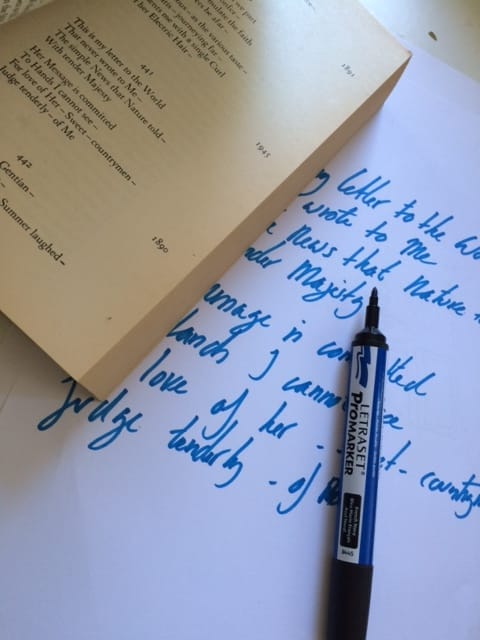 simulate the faith
as the various taste –
– journeying far –
ments me with a single Curl
Electric Hair –
1891
441
This is my letter to the World
That never wrote to Me –
The simple News that Nature told –
With tender Majesty
Her Message is committed
To Hands I cannot see –
For love of Her – Sweet – countrymen –
Judge tenderly – of Me
1945
442
Gentian –
Summer laughed –
1890
letter to the Wo
wrote to me
News that Nature
nder Majesty
message is committed
hands I cannot see
love of her – countrym
Judge tenderly – of
LETRASET
PROMARKER